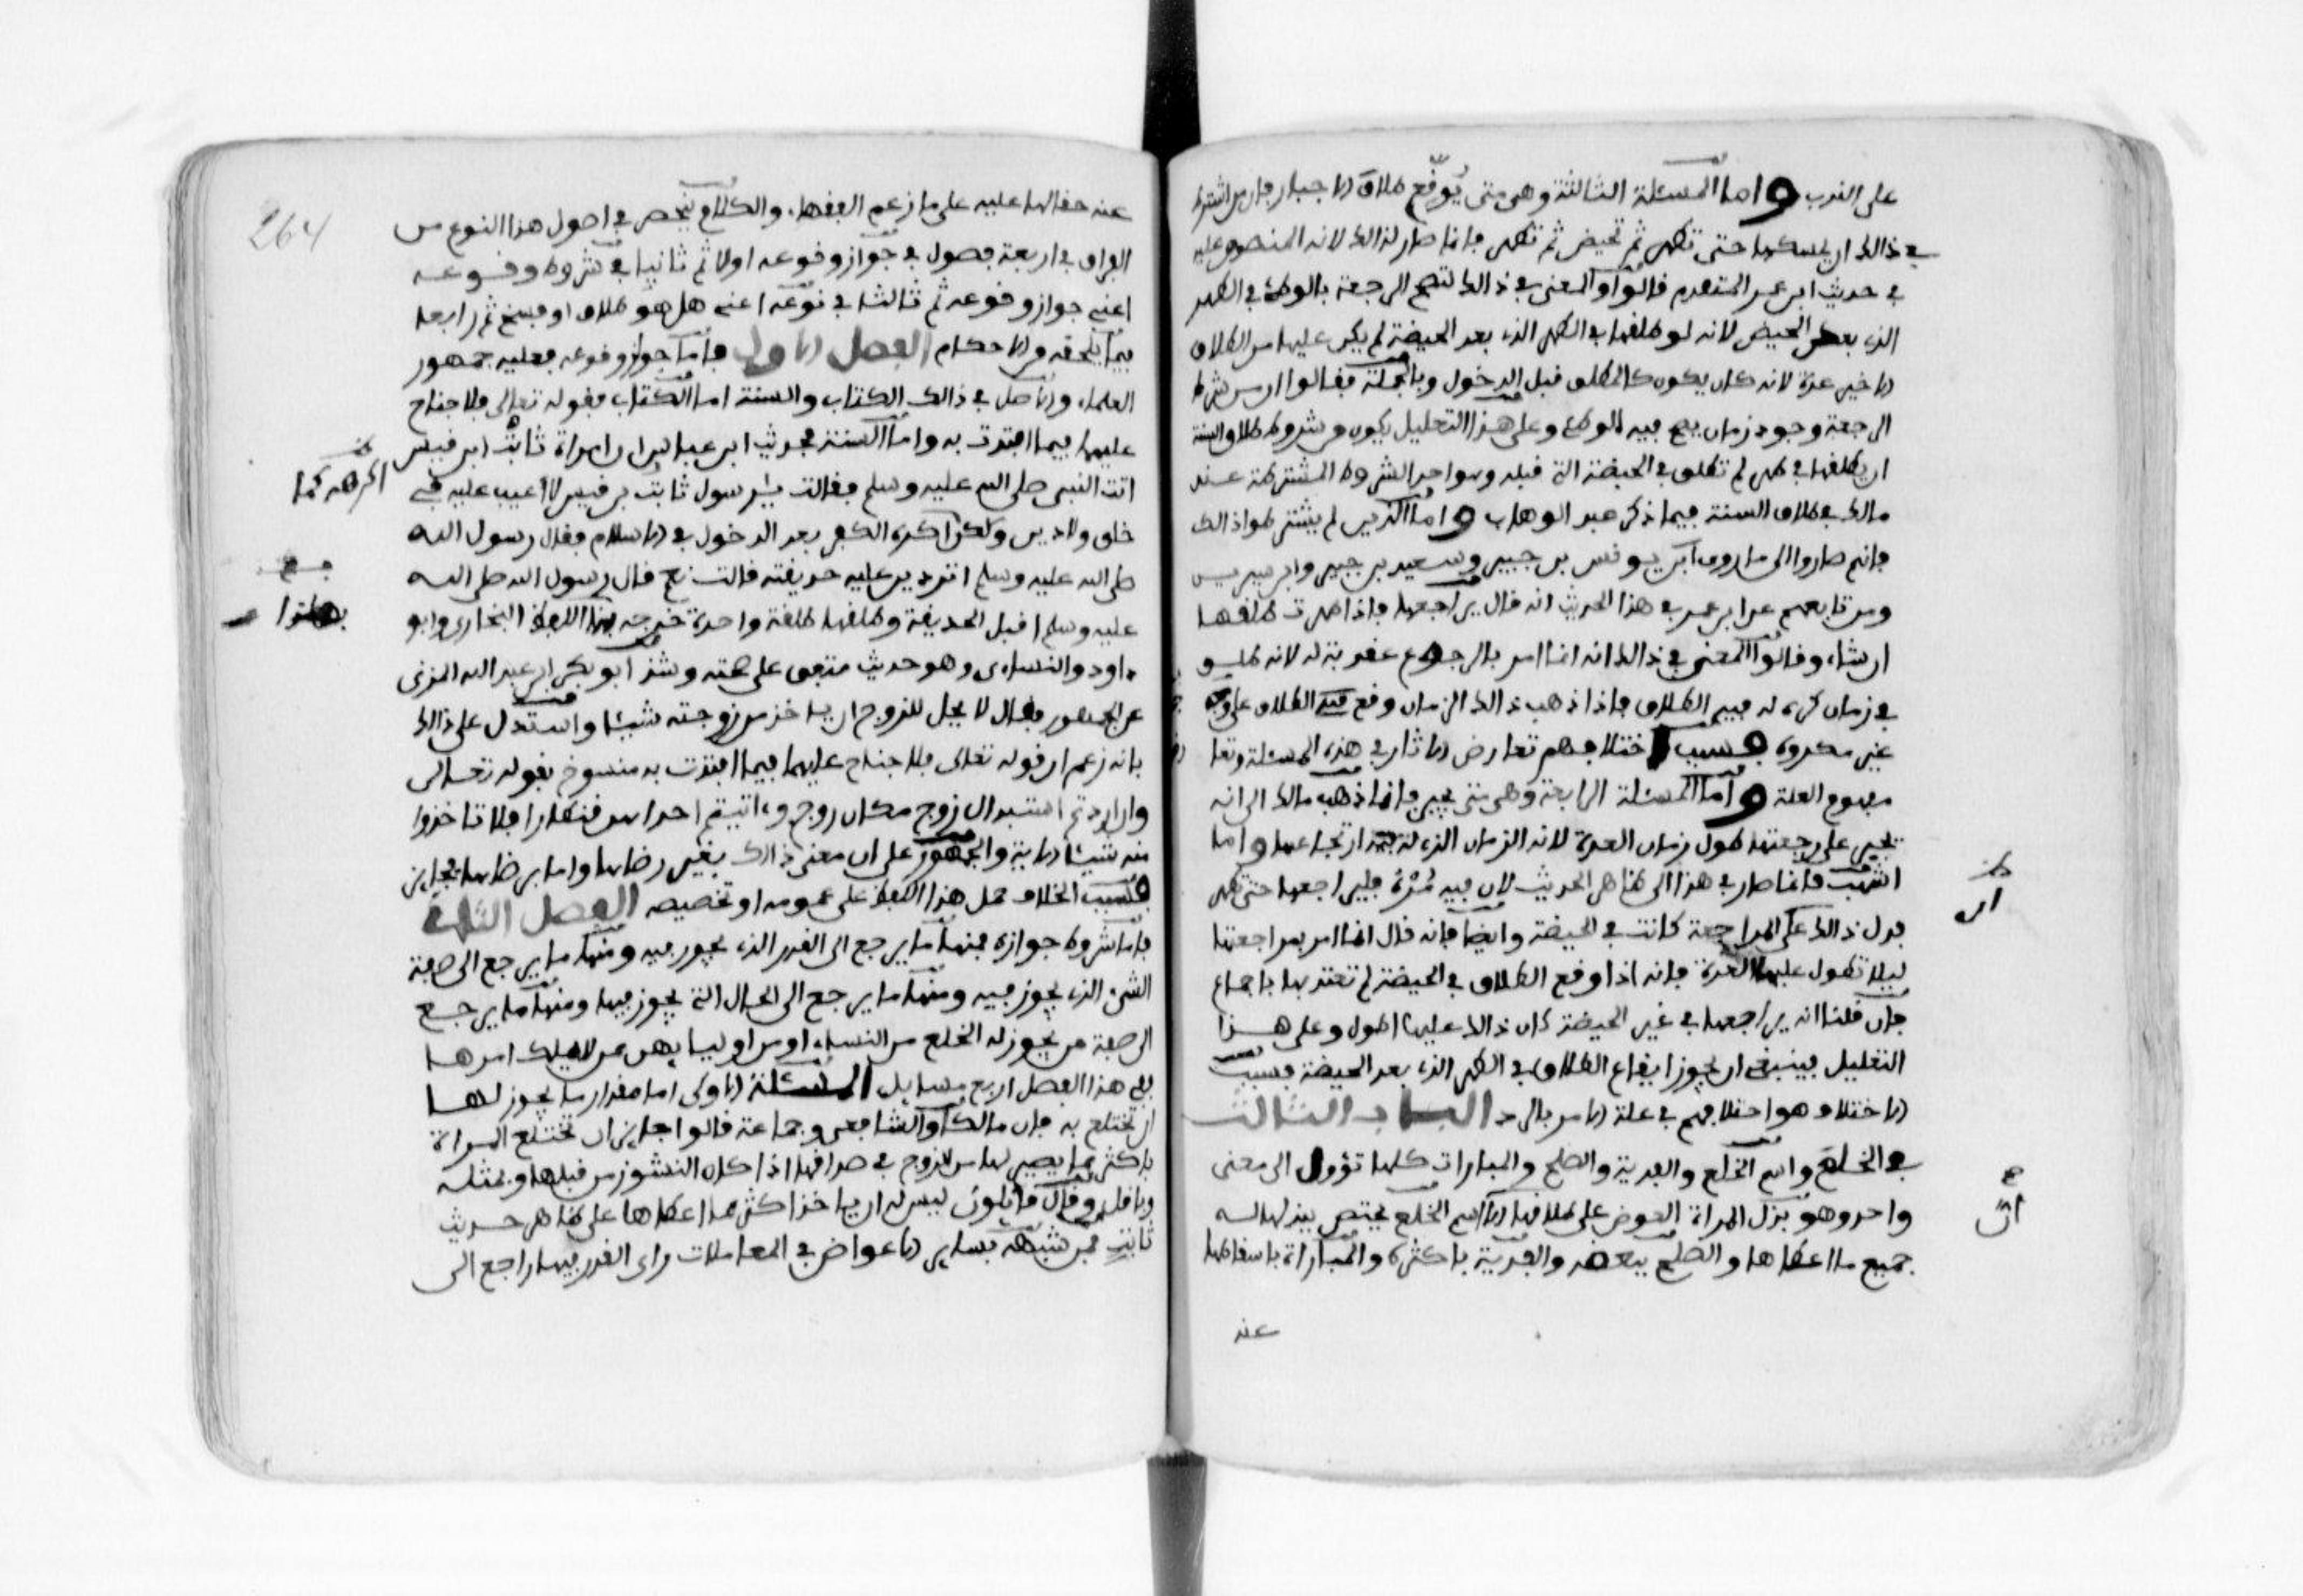 على الندب واما المسئلة الثالثة وهي متى يوقع طلاق الاجبار فان من اشترط
في ذالك ان يمسكها حتى تطهر ثم تحيض ثم تطهر فانما صار لذالك لانه المنصوص عليه
في حديث ابن عمر المتقدم قالوا والمعنى في ذالك لتصح الرجعة بالوطء في الطهر
الذي بعد الحيض لانه لو طلقها في الطهر الذي بعد الحيضة لم يكن عليها من الطلاق
الاخير عدة لانه كان يكون كالمطلق قبل الدخول وبالجملة فقالوا ان من شرط
الرجعة وجود زمان يصح فيه الوطء وعلى هذا التعليل يكون من شروط طلاق السنة
ان يطلقها في طهر لم تطلق في الحيضة التي قبله وهو احد الشروط المشترطة عند
مالك في طلاق السنة فيما ذكر عبد الوهاب واما الذين لم يشترطوا ذالك
فانهم صاروا الى ما روى يونس بن جبير وسعيد بن جبير وابن سيرين
ومن تابعهم عن ابن عمر في هذا الحديث انه قال يراجعها فاذا طهرت طلقها
ان شاء وقالوا المعنى في ذالك انه انما امر بالرجوع عقوبة له لانه طلق
في زمان كره له فيه الطلاق فاذا ذهب ذالك الزمان وقع منه الطلاق على وجه
غير مكروه فسبب اختلافهم تعارض الاثار في هذه المسئلة وتعا
مفهوم العلة واما المسئلة الرابعة وهي متى يجبر فانما ذهب مالك الى انه
يجبر على رجعتها طول زمان العدة لانه الزمان الذي له فيه ارتجاعها واما
اشهب فانما صار في هذا الى ظاهر الحديث لان فيه مره فليراجعها حتى تطهر
فدل ذالك على المراجعة كانت في الحيضة وايضا فانه قال انما امر بمراجعتها
ليلا تطول عليها العدة فانه اذا وقع الطلاق في الحيضة لم تعتد بها باجماع
فان قلنا انه يراجعها في غير الحيضة كان ذالك عليها اطول وعلى هذا
التعليل فينبغي ان يجوز ايقاع الطلاق في الطهر الذي بعد الحيضة فسبب
الاختلاف هو اختلافهم في علة الامر بالرد الباب الثالث
في الخلع واسم الخلع والفدية والصلح والمبارات كلها تؤول الى معنى
واحد وهو بذل المراة العوض على طلاقها الا ان اسم الخلع يختص ببذلها له
جميع ما اعطاها والصلح ببعضه والفدية باكثره والمباراة باسقاطها
عنه
ان
264
عنه حقا لها عليه على ما زعم الفقهاء والكلام ينحصر في اصول هذا النوع من
الفراق في اربعة فصول في جواز وقوعه اولا ثم ثانيا في شروط وقوعه
اعني جواز وقوعه ثم ثالثا في نوعه اعني هل هو طلاق او فسخ ثم رابعا
فيما يلحقه من الاحكام الفصل الاول فاما جواز وقوعه فعليه جمهور
العلماء والاصل في ذالك الكتاب والسنة اما الكتاب فقوله تعالى فلا جناح
عليهما فيما افتدت به واما السنة فحديث ابن عباس ان امراة ثابت ابن قيس
اتت النبي صلى الله عليه وسلم فقالت يرسول ثابت بن قيس لا اعيب عليه في
خلق ولا دين ولكن اكره الكفر بعد الدخول في الاسلام فقال رسول الله
صلى الله عليه وسلم اتردين عليه حديقته قالت نعم قال رسول الله صلى الله
عليه وسلم اقبل الحديقة وطلقها طلقة واحدة خرجه بهذا اللفظ البخاري وابو
داود والنساءى وهو حديث متفق على صحته وشذ ابو بكر ابن عبد الله المزنى
عن الجمهور فقال لا يحل للزوج ان ياخذ من زوجته شيئا واستدل على ذالك
بانه زعم ان قوله تعالى فلا جناح عليهما فيما افتدت به منسوخ بقوله تعالى
وان اردتم استبدال زوج مكان زوج وءاتيتم احداهن قنطارا فلا تاخذوا
منه شيئا الاية والجمهور على ان معنى ذالك بغير رضاها واما برضاها فجايز
فسبب الخلاف حمل هذا اللفظ على عمومه او تخصيصه الفصل الثاني
فاما شروط جوازه فمنها ما يرجع الى القدر الذي يجوز فيه ومنها ما يرجع الى صفة
الشيء الذي يجوز فيه ومنها ما يرجع الى الحال التي يجوز فيها ومنها ما يرجع
الى صفة من يجوز له الخلع من النساء او من اوليايهن ممن لا يملك امرها
ففي هذا الفصل اربع مسايل المسئلة الاولى اما مقدار ما يجوز لها
ان تختلع به فان مالكا والشافعي وجماعة قالوا جايز ان تختلع المراة
باكثر مما يصير لها من الزوج في صداقها اذا كان النشوز من قبلها وبمثله
وباقل وقال قايلون ليس له ان ياخذ اكثر مما اعطاها على ظاهر حديث
ثابت فمن شبهه بساير الاعواض في المعاملات راى القدر فيها راجع الى